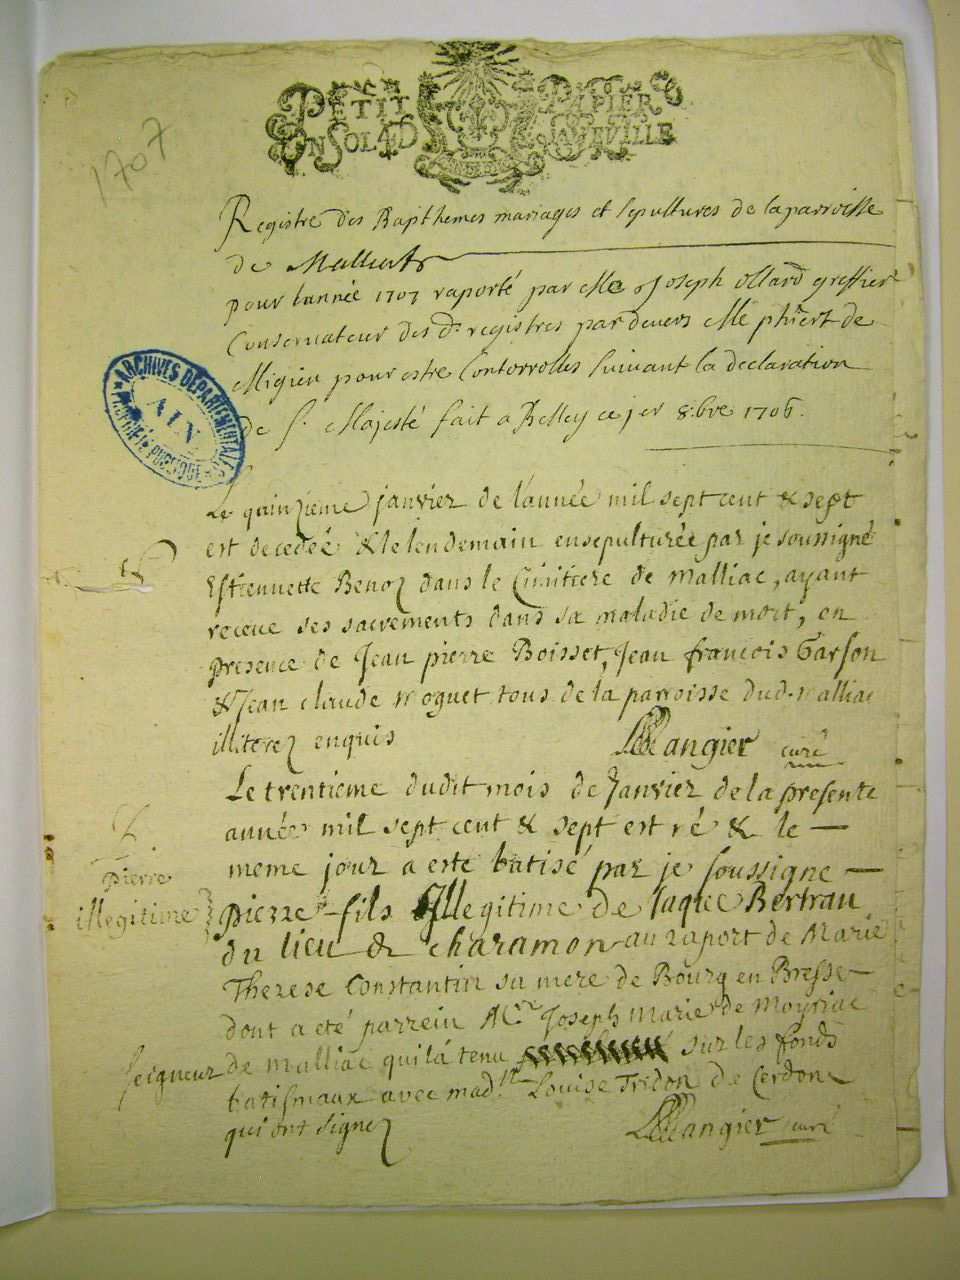 1707
PETIT PAPIER
UN SOL 4 D LA FEUILLE
Registre des Bapthemes mariages et sepultures de la parroisse
de Malliat
pour lannée 1707 raporté par Me Joseph Ollard greffier
Conservateur des d. registres par devers Me de
Migieu pour estre Contorrolles suivant la declaration
de Sa Majesté fait a Belley ce jer 8.bre 1706.
ARCHIVES DÉPARTEMENTALES
AIN
PROPRIÉTÉ PUBLIQUE
Le quinzieme janvier de l'année mil sept cent & sept
est decedeé & le lendemain ensepulturée par je soussigné
Estiennette Benoz dans le Cimitiere de malliac, ayant
receue ses sacrements dans sa maladie de mort, en
presence de Jean pierre Boisset, Jean francois Garson
& Jean claude moguet tous de la parroisse dud. malliac
illiterez enquis
Mangier curé
Le trentieme dudit mois de Janvier de la presente
année mil sept cent & sept est né & le
meme jour a esté batisé par je soussigne
Pierre
illegitime
pierre fils Illegitime de Jaque Bertrau
du lieu de charamon au raport de Marie
Therese Constantin sa mere de Bourg en Bresse
dont a eté parrein Mr Joseph Marie de Moyriac
seigneur de malliac qui lá tenu sur les fonds
batismaux avec madlle Louise Tridon de Cerdon
qui ont signez
Mangier curé